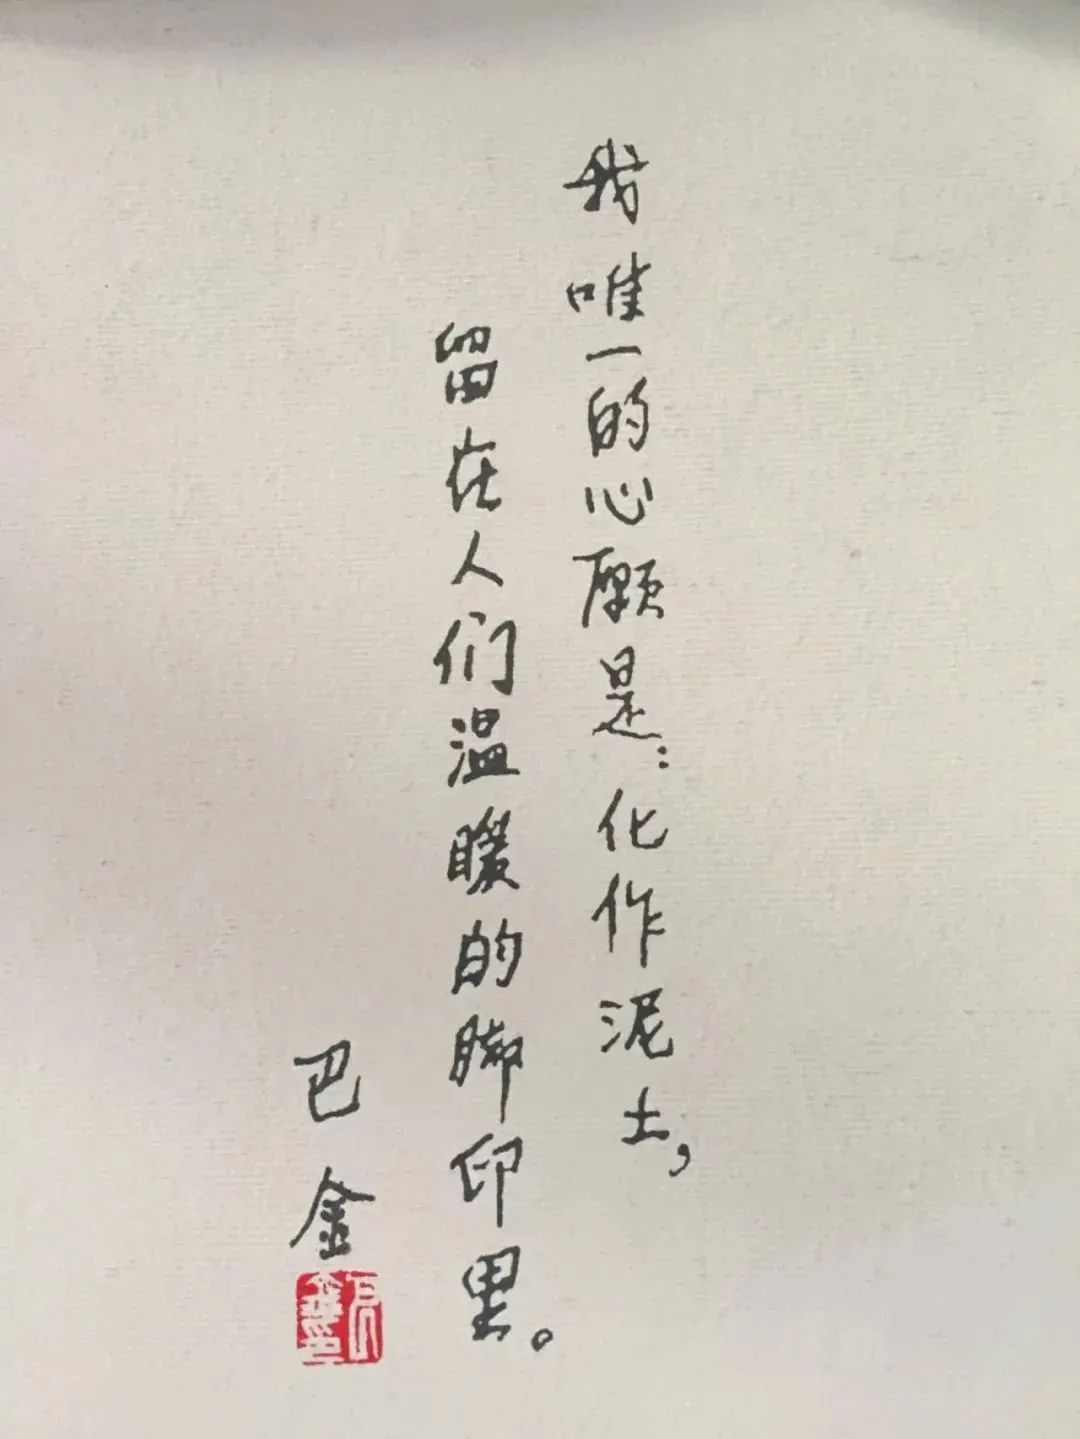 我唯一的心愿是：化作泥土，
留在人们温暖的脚印里。
巴金